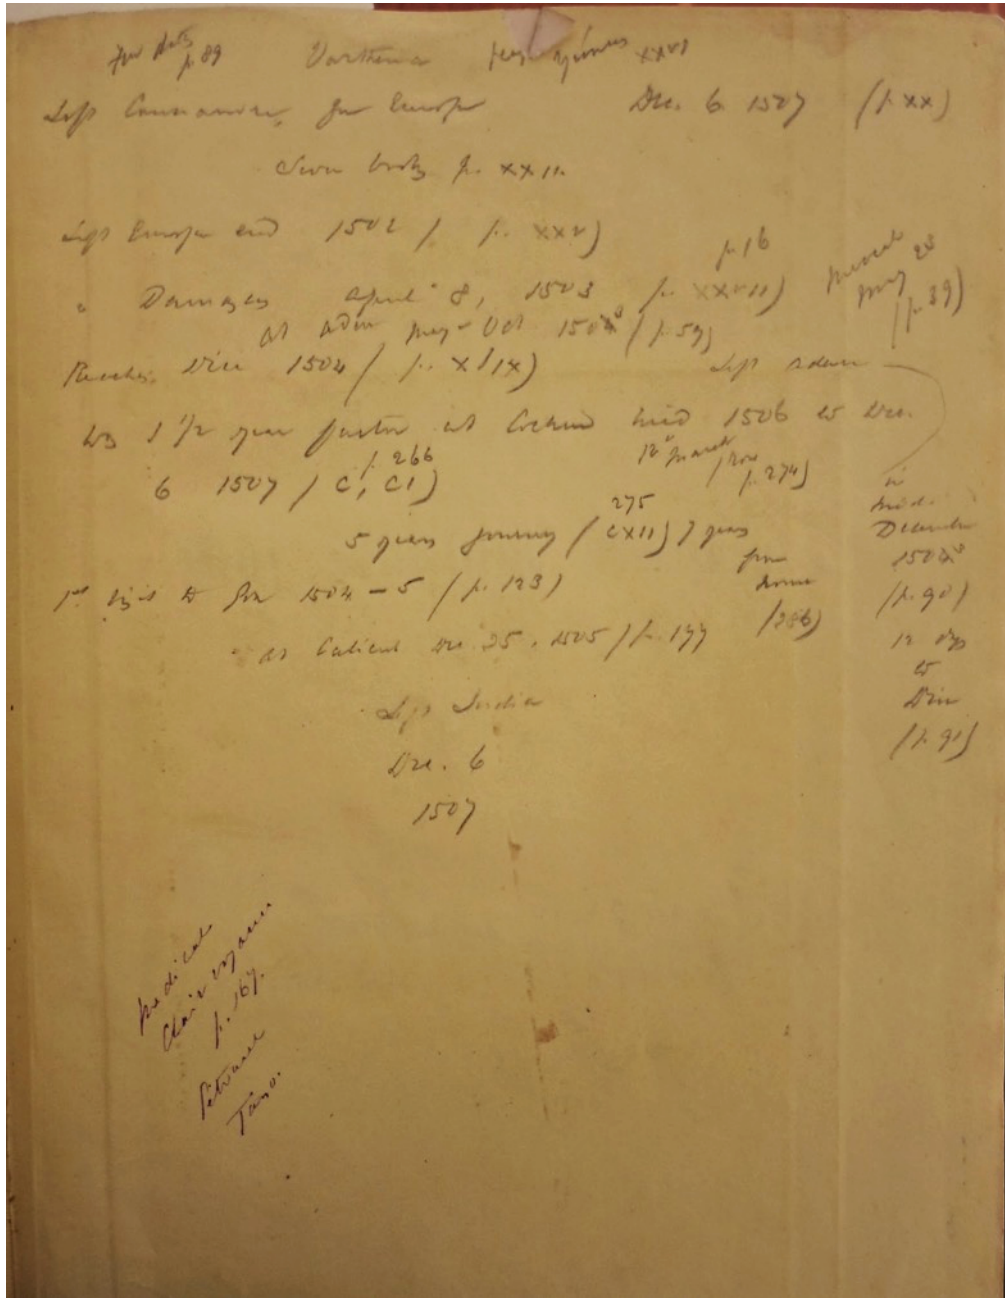 For dates p. 89
Varthema
xxvi
Left Cannanore, for Europe Dec. 6. 1507 (p. xx)
Seven books p. xxii.
Left Europe end 1502 (p. xxv)
" Damascus April 8, 1503 (p. xxvii) p. 16
May 23 (p. 39)
At Aden May - Oct 1503 (p. 59)
Reaches Diu 1504 (p. xlix)
Left Aden
in mid. December 1503 (p. 90) 12 days to Diu (p. 91)
Was 1 1/2 year factor at Cochin mid 1506 to Dec.
6 1507 (c, ci) p. 266
12 March p. 274)
5 years journey (cxii) 275 7 years from Rome (286)
1st visit to Goa 1504-5 (p. 123)
at Calicut Dec. 25. 1505 (p. 177
Left India
Dec. 6
1507
Medical
Clairvoyance
p. 167.
Petrarch
Tasso.